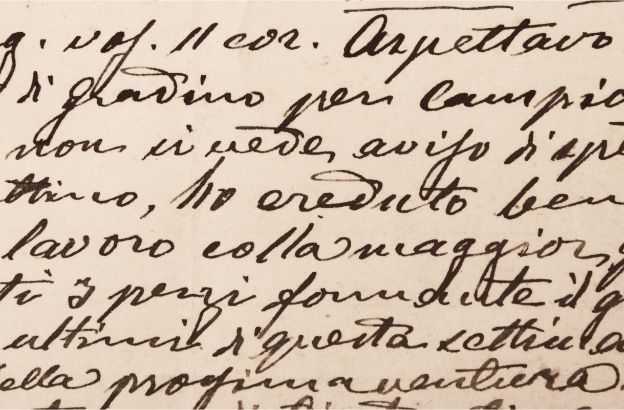 g. vos. 11 cor. Aspettavo
di gradino per campio
non si vede, aviso di spe
ttino, ho creduto ben
lavoro colla maggior
ti 3 pezzi formante il g
ultimi di questa settima
della prossima ventura